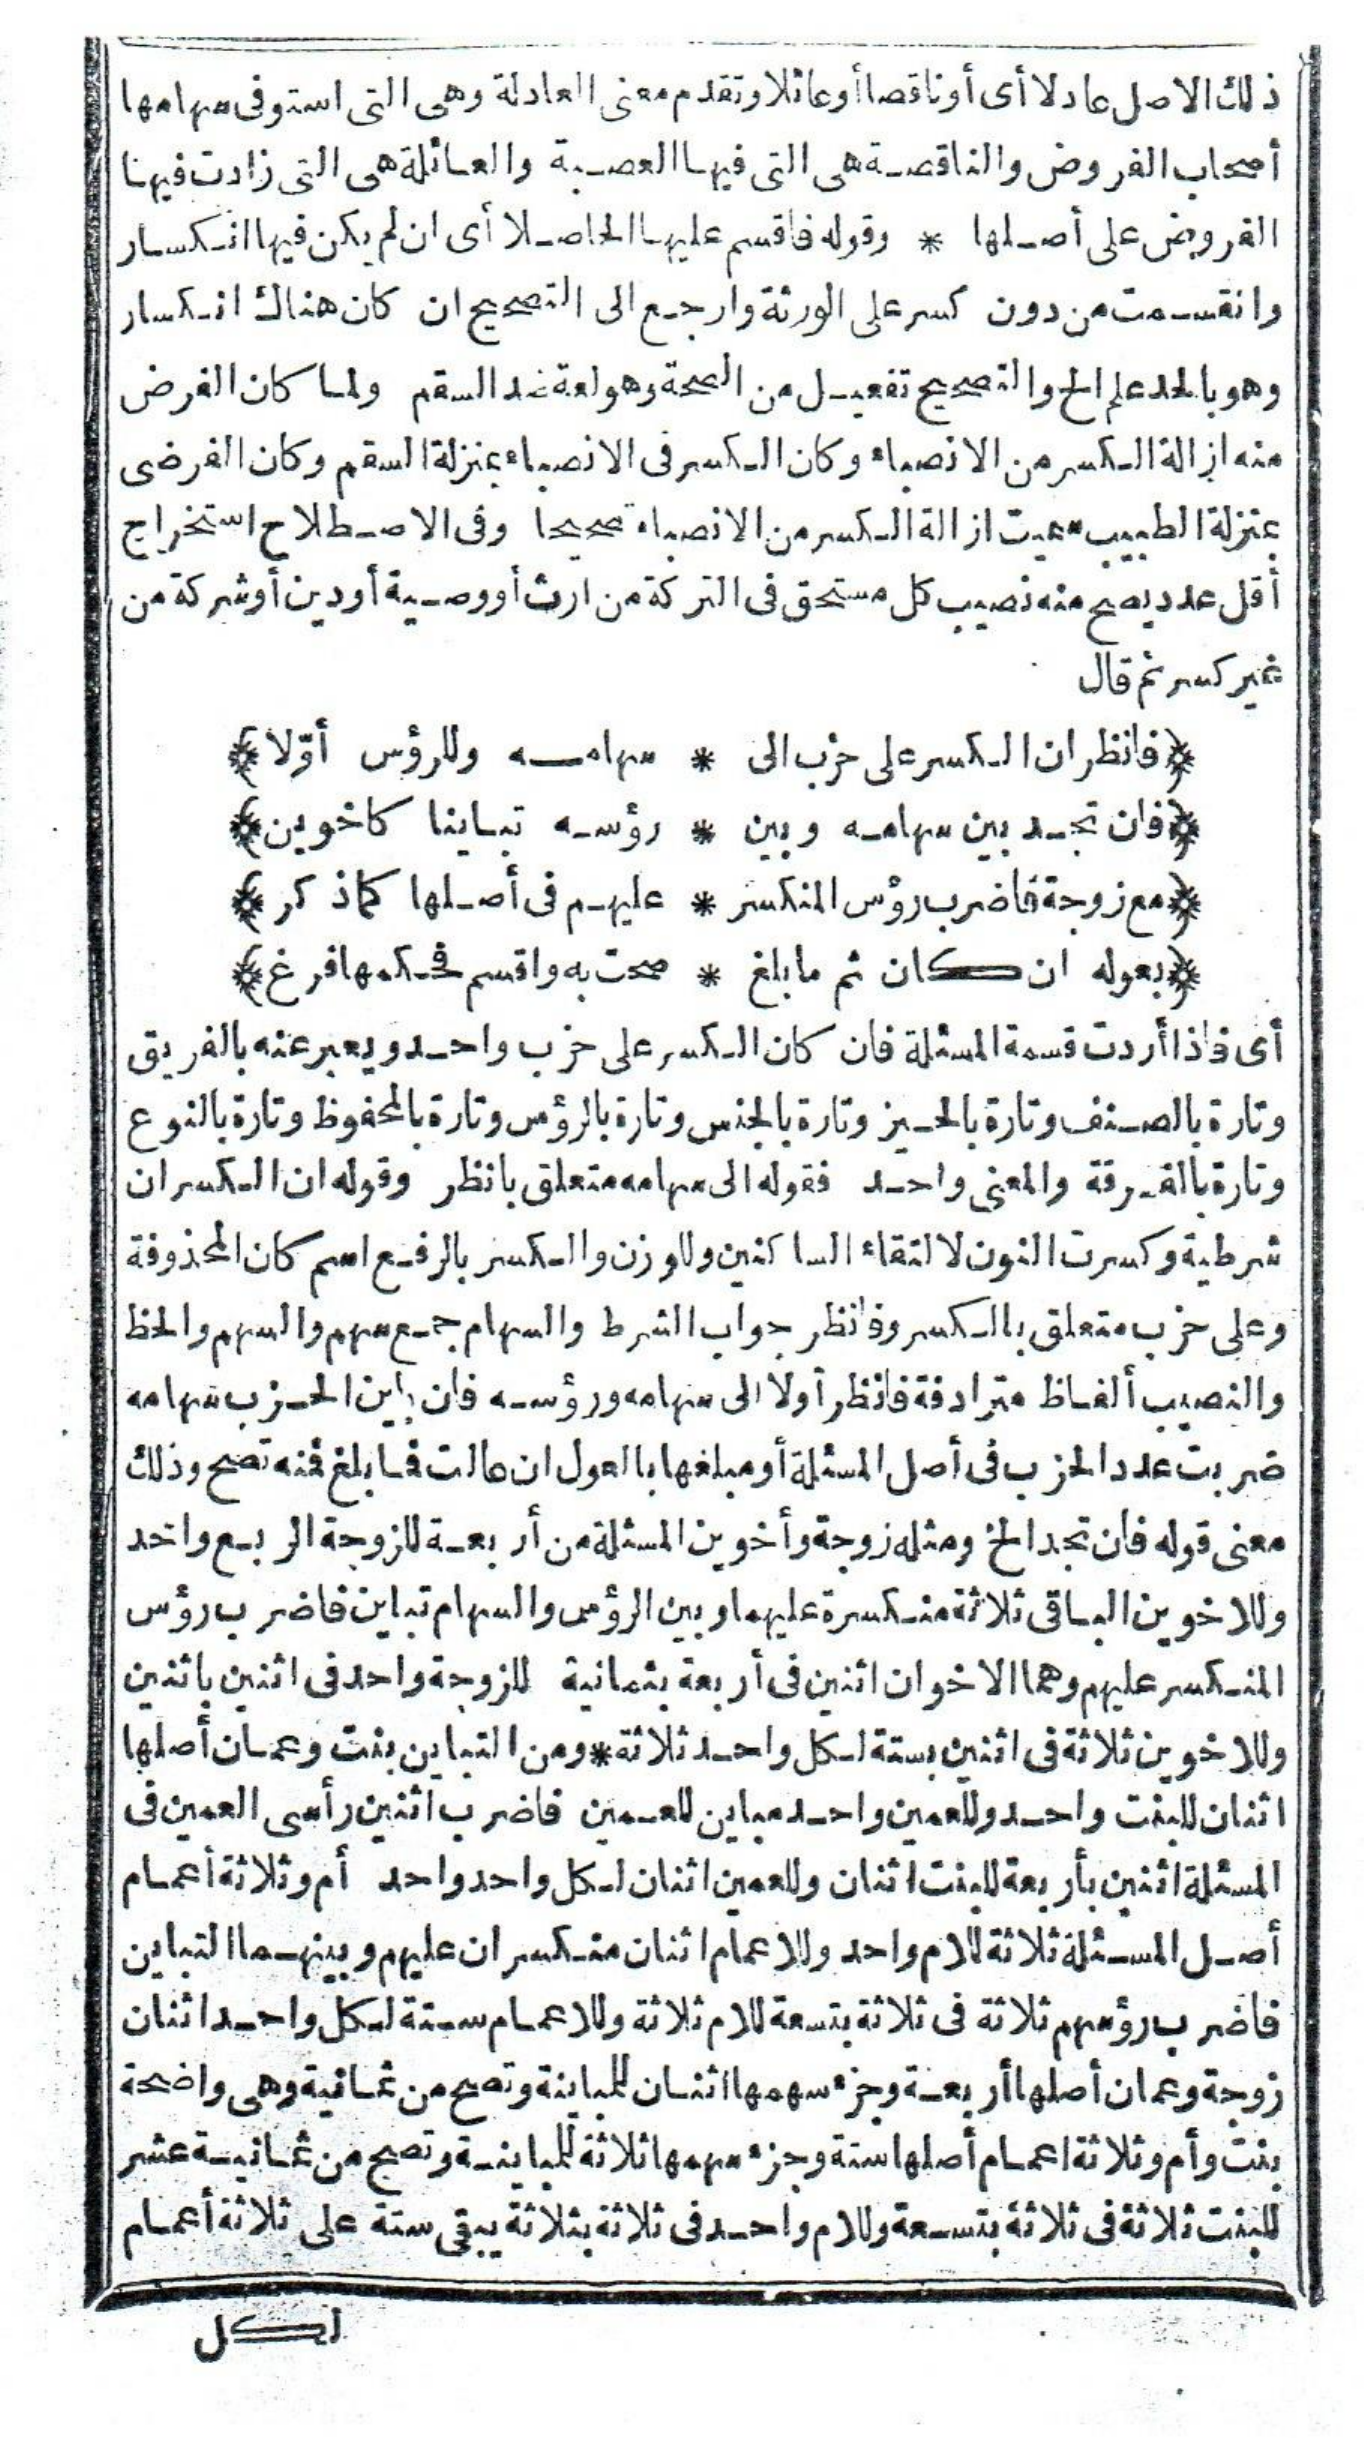 ذلك الاصل عادلا أى أوناقصا أوعائلا وتقدم معنى العادلة وهى التى استوفى سهامها
أصحاب الفروض والناقصة هى التى فيها العصبة والعائلة هى التى زادت فيها
الفروض على أصلها * وقوله فاقسم عليها الحاصلا أى ان لم يكن فيها انكسار
وانقسمت من دون كسر على الورثة وارجع الى التصحيح ان كان هناك انكسار
وهو بالحد علم الخ والتصحيح تفعيل من الصحة وهو لغة ضد السقم ولما كان الغرض
منه ازالة الكسر من الانصباء وكان الكسر فى الانصباء بمنزلة السقم وكان الفرضى
بمنزلة الطبيب سميت ازالة الكسر من الانصباء تصحيحا وفى الاصطلاح استخراج
أقل عدد يصح منه نصيب كل مستحق فى التركة من ارث أو وصية أودين أوشركة من
غير كسر ثم قال
﴿فانظر ان الكسر على حزب الى * سهامه وللرؤس أوّلا﴾
﴿فان تجد بين سهامه وبين * رؤسه تباينا كاخوين﴾
﴿مع زوجة فاضرب رؤس المنكسر * عليهم فى أصلها كما ذكر﴾
﴿بعوله ان كان ثم مابلغ * صحت به واقسم فحكمها فرغ﴾
أى فاذا أردت قسمة المسئلة فان كان الكسر على حزب واحد ويعبر عنه بالفريق
وتارة بالصنف وتارة بالحيز وتارة بالجنس وتارة بالرؤس وتارة بالمحفوظ وتارة بالنوع
وتارة بالفرقة والمعنى واحد فقوله الى سهامه متعلق بانظر وقوله ان الكسر ان
شرطية وكسرت النون لالتقاء الساكنين وللوزن والكسر بالرفع اسم كان المحذوفة
وعلى حزب متعلق بالكسر وفانظر جواب الشرط والسهام جمع سهم والسهم والحظ
والنصيب ألفاظ مترادفة فانظر أولا الى سهامه ورؤسه فان باين الحزب سهامه
ضربت عدد الحزب فى أصل المسئلة أومبلغها بالعول ان عالت فما بلغ فمنه تصح وذلك
معنى قوله فان تجد الخ ومثله زوجة وأخوين المسئلة من أربعة للزوجة الربع واحد
وللاخوين الباقى ثلاثة منكسرة عليهما وبين الرؤس والسهام تباين فاضرب رؤس
المنكسر عليهم وهما الاخوان اثنين فى أربعة بثمانية للزوجة واحد فى اثنين باثنين
وللاخوين ثلاثة فى اثنين بستة لكل واحد ثلاثة * ومن التباين بنت وعمان أصلها
اثنان للبنت واحد وللعمين واحد مباين للعمين فاضرب اثنين رأسى العمين فى
المسئلة اثنين بأربعة للبنت اثنان وللعمين اثنان لكل واحد واحد أم وثلاثة أعمام
أصل المسئلة ثلاثة للام واحد وللاعمام اثنان منكسران عليهم وبينهما التباين
فاضرب رؤسهم ثلاثة فى ثلاثة بتسعة للام ثلاثة وللاعمام ستة لكل واحد اثنان
زوجة وعمان أصلها أربعة وجزء سهمها اثنان للمباينة وتصح من ثمانية وهى واضحة
بنت وأم وثلاثة اعمام أصلها ستة وجزء سهمها ثلاثة للمباينة وتصح من ثمانية عشر
للبنت ثلاثة فى ثلاثة بتسعة وللام واحد فى ثلاثة بثلاثة يبقى ستة على ثلاثة أعمام
لكل